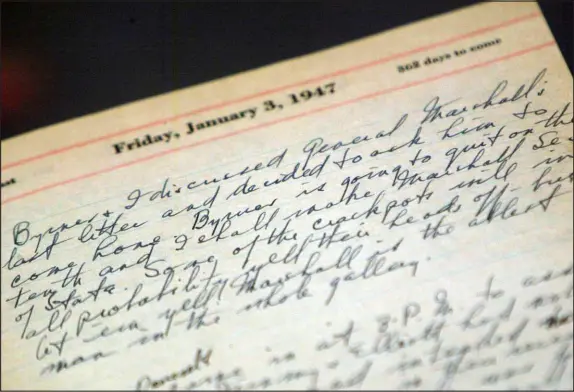 362 days to come
Friday, January 3, 1947
Byrnes & I discussed General Marshall's
last letter and decided to ask him to
come home. Byrnes is going to quit on the
tenth and I shall make Marshall Sec
of State. Some of the crackpots will in
all probability yell their heads off - but
let 'em yell! Marshall is the ablest
man in the whole gallery.
came in at 3 P.M. to